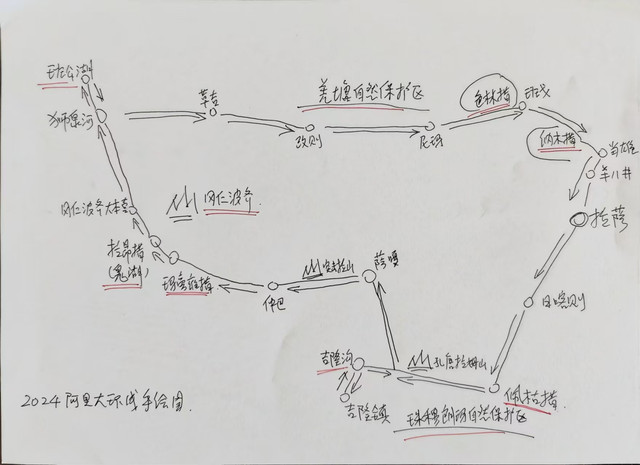 班公湖
狮泉河
革吉
羌塘自然保护区
改则
尼玛
色林措
班戈
纳木措
当雄
羊八井
拉萨
冈仁波齐大本营
冈仁波齐
拉昂措
(鬼湖)
玛旁雍措
仲巴
突击拉山
萨嘎
日喀则
吉隆沟
吉隆镇
孔唐拉姆山
佩枯措
珠穆朗玛自然保护区
2024阿里大环线手绘图.